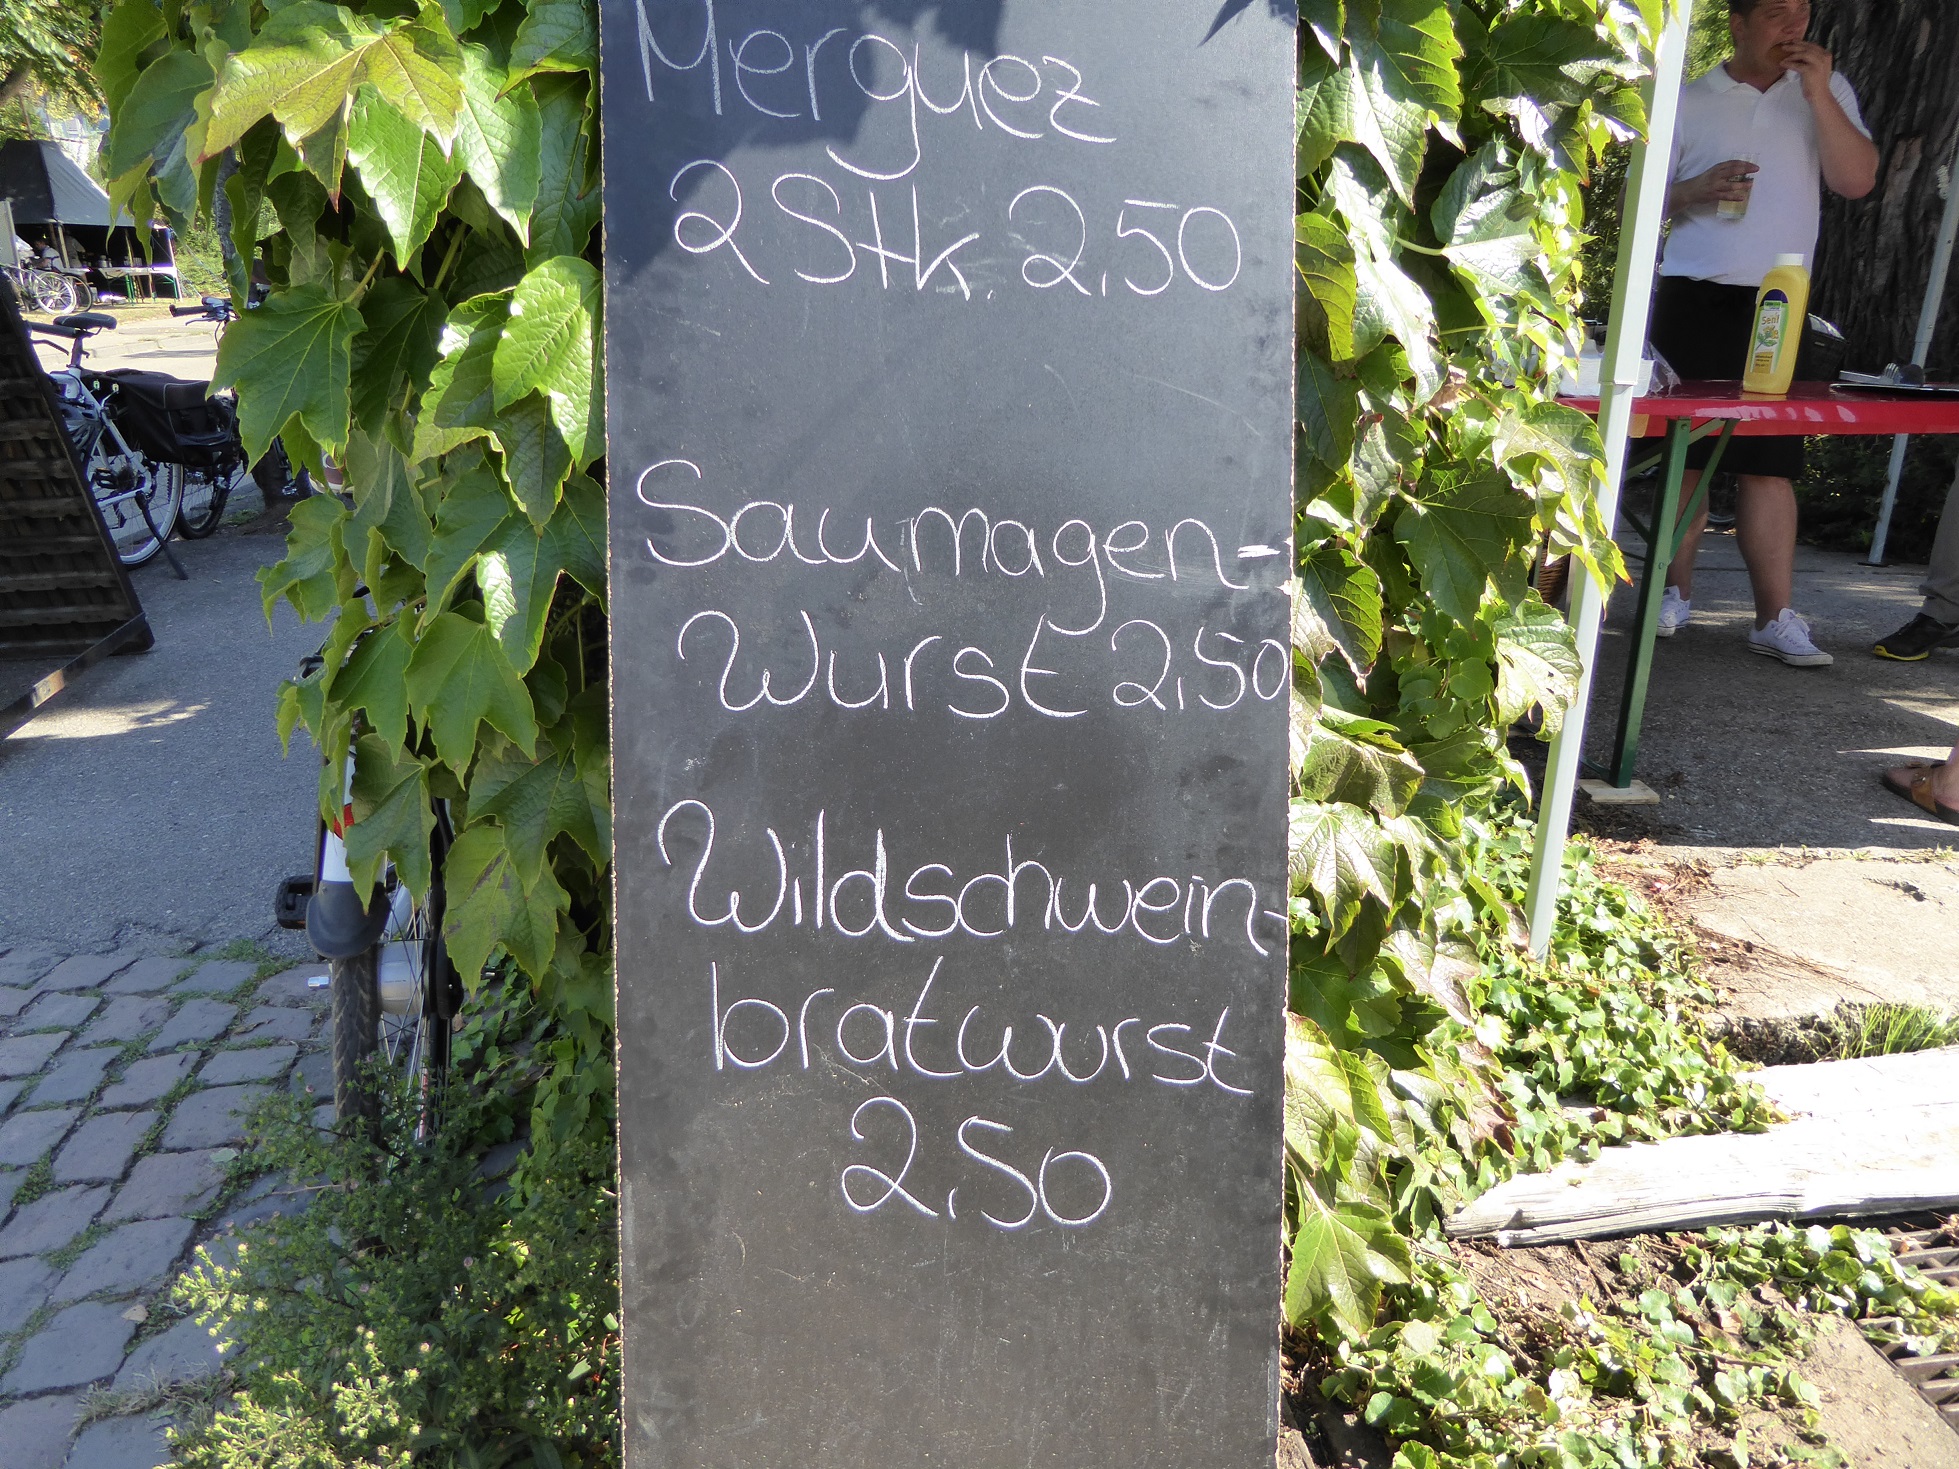 Merguez
2 Stk. 2,50
Saumagen-
Wurst 2,50
Wildschwein-
bratwurst
2,50
Senf